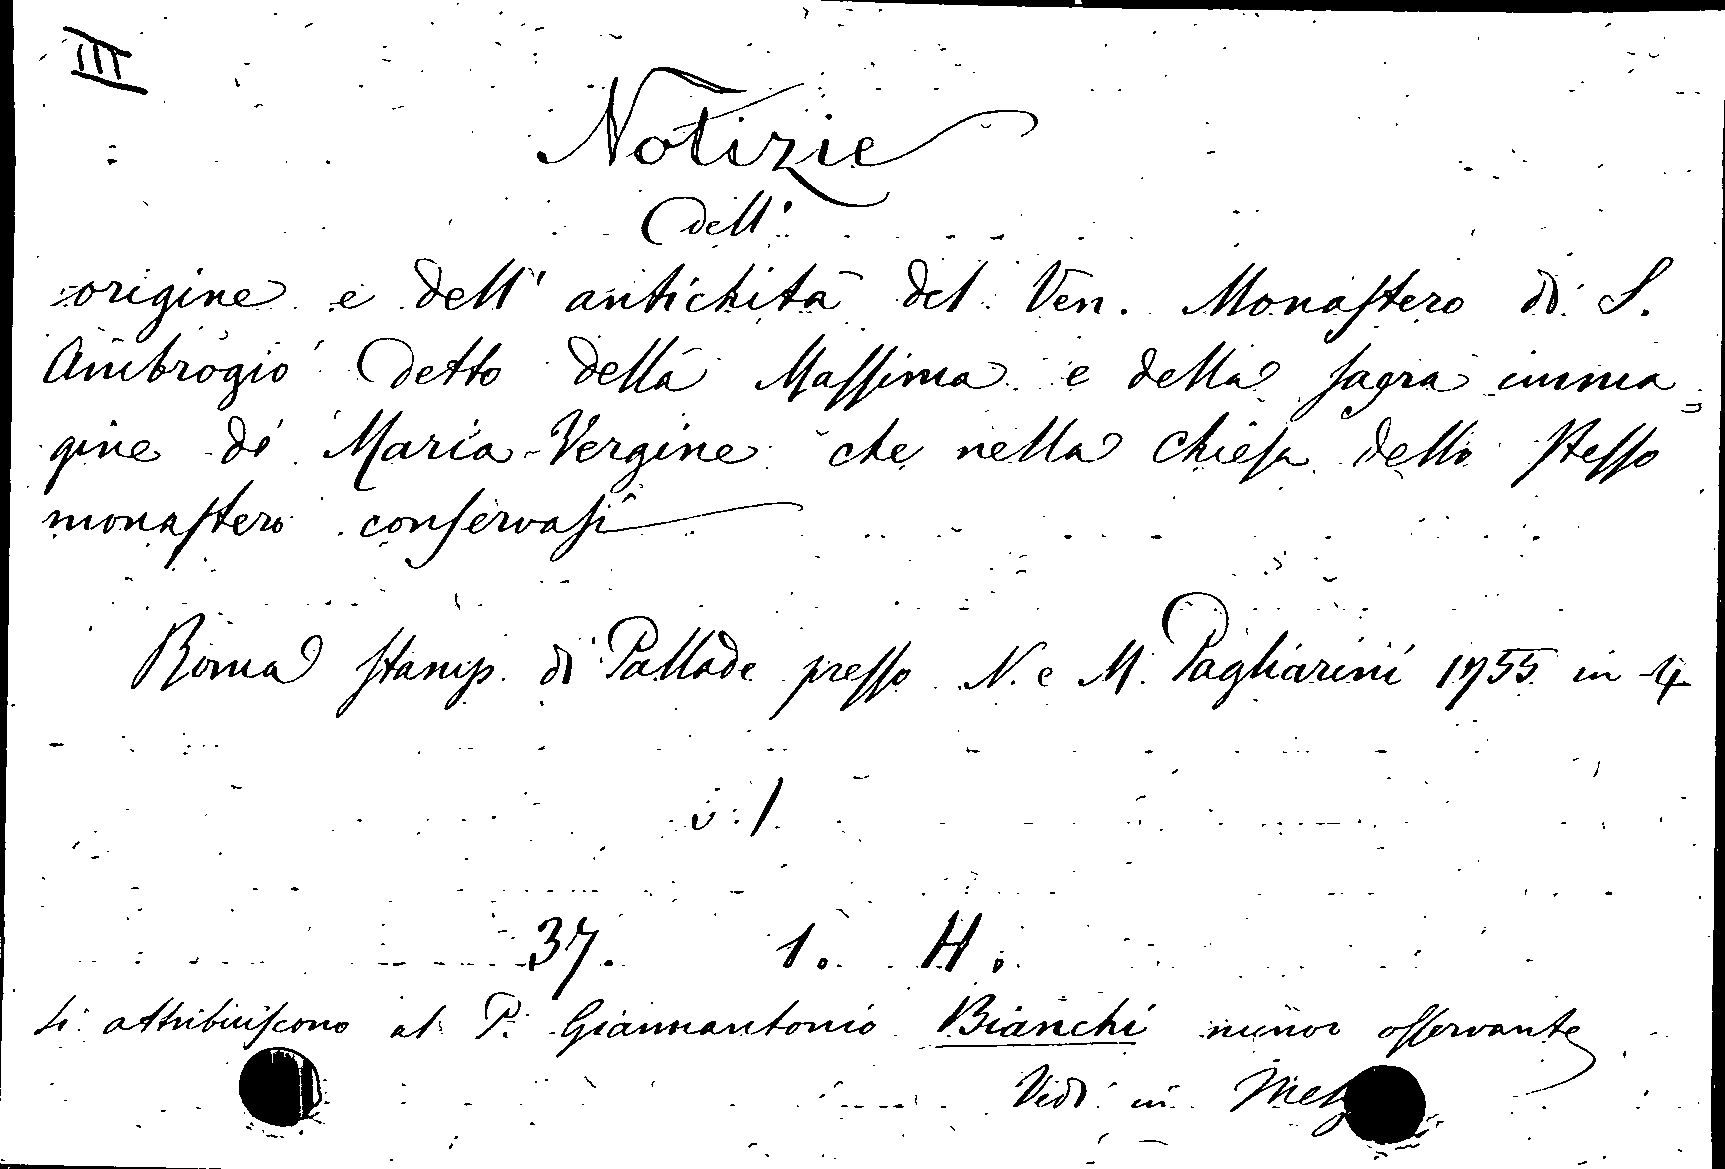 III
Notizie
dell'
origine e dell' antichità del Ven. Monastero di S.
Ambrogio detto della Massima e della sagra imma=
gine di Maria Vergine che nella chiesa dello stesso
monastero conservasi
Roma stamp. di Pallade presso N. e M. Pagliarini 1755 in 4
v. 1
37. 1. H.
Si attribuiscono al P. Giannantonio Bianchi minor osservante
Vedi in